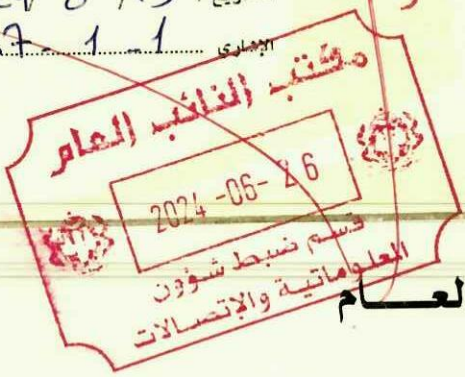 الإشاري 1 - 1 - 7
مكتب النائب العام
2024 -06- 26
قسم ضبط شؤون
المعلوماتية والإتصالات
لعـــام